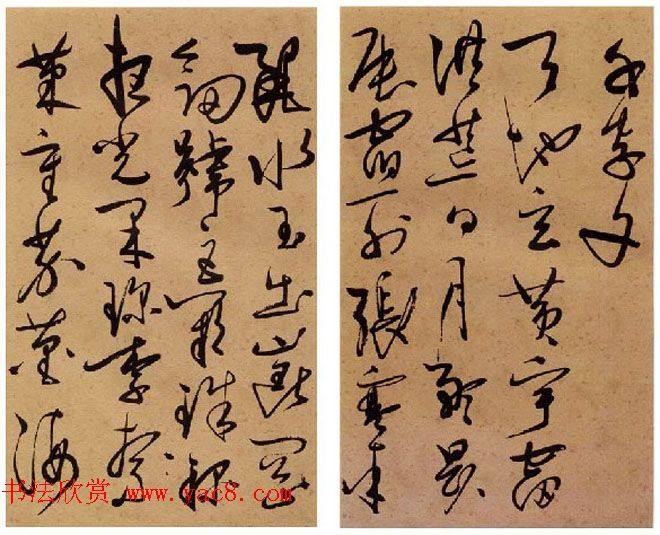 千字文
天地玄黃宇宙
洪荒日月盈昃
辰宿列張寒來
麗水玉出崑岡
劍號巨闕珠稱
夜光果珍李柰
菜重芥薑海
书法欣赏 www.yac8.com